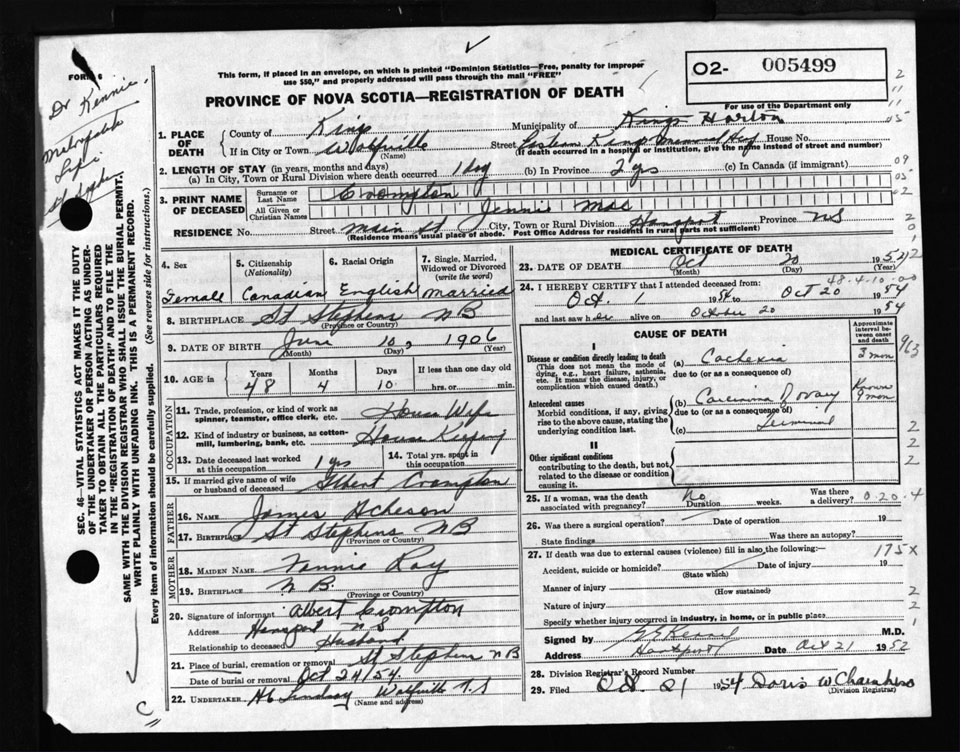 FORM 6
This form, if placed in an envelope, on which is printed "Dominion Statistics—Free, penalty for improper
use $50," and properly addressed will pass through the mail "FREE"
O2- 005499
For use of the Department only
PROVINCE OF NOVA SCOTIA—REGISTRATION OF DEATH
Dr Kennie,
St Stephen
SEC. 46—VITAL STATISTICS ACT MAKES IT THE DUTY
OF THE UNDERTAKER OR PERSON ACTING AS UNDER-
TAKER TO OBTAIN ALL THE PARTICULARS REQUIRED
IN THE "REGISTRATION OF DEATH" AND TO FILE THE
SAME WITH THE DIVISION REGISTRAR WHO SHALL ISSUE THE BURIAL PERMIT.
WRITE PLAINLY WITH UNFADING INK. THIS IS A PERMANENT RECORD.
Every item of information should be carefully supplied. (See reverse side for instructions.)
1. PLACE OF DEATH County of Kings Municipality of Kings Horton
If in City or Town Wolfville (Name) Street Eastern Kings Mem Hosp House No.
(If death occurred in a hospital or institution, give the name instead of street and number)
2. LENGTH OF STAY (in years, months and days)
(a) In City, Town or Rural Division where death occurred 1 day (b) In Province 2 yrs (c) In Canada (if immigrant)
3. PRINT NAME OF DECEASED Surname or Last Name Crompton
All Given or Christian Names Jennie Mae
RESIDENCE No. Street Main St City, Town or Rural Division Hantsport Province NS
(Residence means usual place of abode. Post Office Address for residents in rural parts not sufficient)
4. Sex Female
5. Citizenship (Nationality) Canadian
6. Racial Origin English
7. Single, Married, Widowed or Divorced (write the word) Married
8. BIRTHPLACE St Stephens NB
(Province or Country)
9. DATE OF BIRTH June 10, 1906
(Month) (Day) (Year)
10. AGE in Years 48 Months 4 Days 10 If less than one day hrs. or min.
OCCUPATION
11. Trade, profession, or kind of work as spinner, teamster, office clerk, etc. House Wife
12. Kind of industry or business, as cotton-mill, lumbering, bank, etc. House Keeping
13. Date deceased last worked at this occupation 1 yrs 14. Total yrs. spent in this occupation
15. If married give name of wife or husband of deceased Albert Crompton
FATHER
16. NAME James Acheson
17. BIRTHPLACE St Stephens NB
(Province or Country)
MOTHER
18. MAIDEN NAME Fannie Ray
19. BIRTHPLACE N.B.
(Province or Country)
20. Signature of informant Albert Crompton
Address Hantsport NS
Relationship to deceased Husband
21. Place of burial, cremation or removal St Stephen NB
Date of burial or removal Oct 24/54
22. UNDERTAKER Lindsay Wolfville N.S
(Name and address)
MEDICAL CERTIFICATE OF DEATH
23. DATE OF DEATH Oct 20 1954
(Month) (Day) (Year)
48-4-10-00
24. I HEREBY CERTIFY that I attended deceased from
Oct. 1 1954 to Oct 20 1954
and last saw her alive on October 20 1954
CAUSE OF DEATH
Approximate interval between onset and death
I
Disease or condition directly leading to death (a) Cachexia 3 mon
(This does not mean the mode of dying, e.g., heart failure, asthenia, etc. It means the disease, injury, or complication which caused death.)
due to (or as a consequence of)
Antecedent causes (b) Carcinoma Ovary Known 9 mon
Morbid conditions, if any, giving rise to the above cause, stating the underlying condition last.
due to (or as a consequence of)
(c) Terminal
II
Other significant conditions
contributing to the death, but not related to the disease or condition causing it.
25. If a woman, was the death associated with pregnancy? No Duration weeks. Was there a delivery? 0.20.4
26. Was there a surgical operation? Date of operation 19
State findings Was there an autopsy?
27. If death was due to external causes (violence) fill in also the following:— 175X
Accident, suicide or homicide? (State which) Date of injury 19
Manner of injury (How sustained)
Nature of injury
Specify whether injury occurred in industry, in home, or in public place
Signed by M.D.
Address Hantsport Date Oct 21 1952
28. Division Registrar's Record Number
29. Filed Oct. 21 1954 Doris W. Chambers
(Division Registrar)